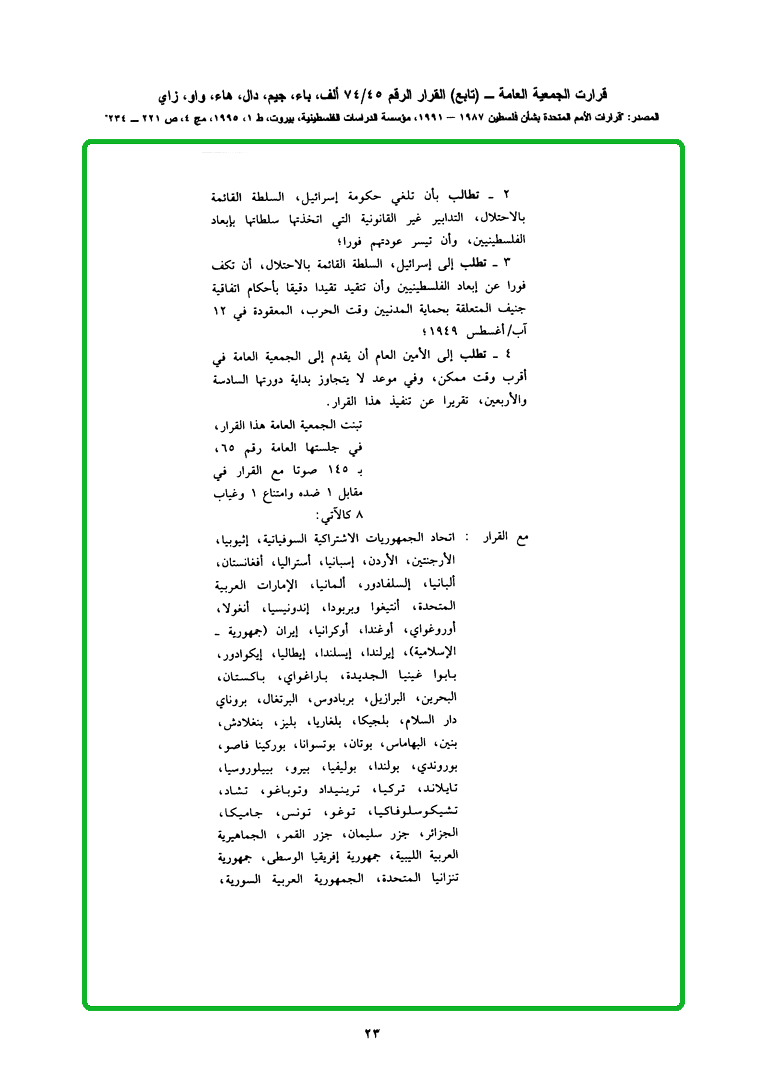 قرارت الجمعية العامة ــ (تابع) القرار الرقم ٧٤/٤٥ ألف، باء، جيم، دال، هاء، واو، زاي
المصدر: "قرارات الأمم المتحدة بشأن فلسطين ١٩٨٧ – ١٩٩١، مؤسسة الدراسات الفلسطينية، بيروت، ط ١، ١٩٩٥، مج ٤، ص ٢٢١ ــ ٢٣٤"
٢ ـ تطالب بأن تلغي حكومة إسرائيل، السلطة القائمة
بالاحتلال، التدابير غير القانونية التي اتخذتها سلطاتها بإبعاد
الفلسطينيين، وأن تيسر عودتهم فورا؛
٣ ـ تطلب إلى إسرائيل، السلطة القائمة بالاحتلال، أن تكف
فورا عن إبعاد الفلسطينيين وأن تتقيد تقيدا دقيقا بأحكام اتفاقية
جنيف المتعلقة بحماية المدنيين وقت الحرب، المعقودة في ١٢
آب/أغسطس ١٩٤٩؛
٤ ـ تطلب إلى الأمين العام أن يقدم إلى الجمعية العامة في
أقرب وقت ممكن، وفي موعد لا يتجاوز بداية دورتها السادسة
والأربعين، تقريرا عن تنفيذ هذا القرار.
تبنت الجمعية العامة هذا القرار،
في جلستها العامة رقم ٦٥،
بـ ١٤٥ صوتا مع القرار في
مقابل ١ ضده وامتناع ١ وغياب
٨ كالآتي:
مع القرار : اتحاد الجمهوريات الاشتراكية السوفياتية، إثيوبيا،
الأرجنتين، الأردن، إسبانيا، أستراليا، أفغانستان،
ألبانيا، إلسلفادور، ألمانيا، الإمارات العربية
المتحدة، أنتيغوا وبربودا، إندونيسيا، أنغولا،
أوروغواي، أوغندا، أوكرانيا، إيران (جمهورية ـ
الإسلامية)، إيرلندا، إيسلندا، إيطاليا، إيكوادور،
بابوا غينيا الجديدة، باراغواي، باكستان،
البحرين، البرازيل، بربادوس، البرتغال، بروناي
دار السلام، بلجيكا، بلغاريا، بليز، بنغلادش،
بنين، البهاماس، بوتان، بوتسوانا، بوركينا فاصو،
بوروندي، بولندا، بوليفيا، بيرو، بييلوروسيا،
تايلاند، تركيا، ترينيداد وتوباغو، تشاد،
تشيكوسلوفاكيا، توغو، تونس، جاميكا،
الجزائر، جزر سليمان، جزر القمر، الجماهيرية
العربية الليبية، جمهورية إفريقيا الوسطى، جمهورية
تنزانيا المتحدة، الجمهورية العربية السورية،
٢٣